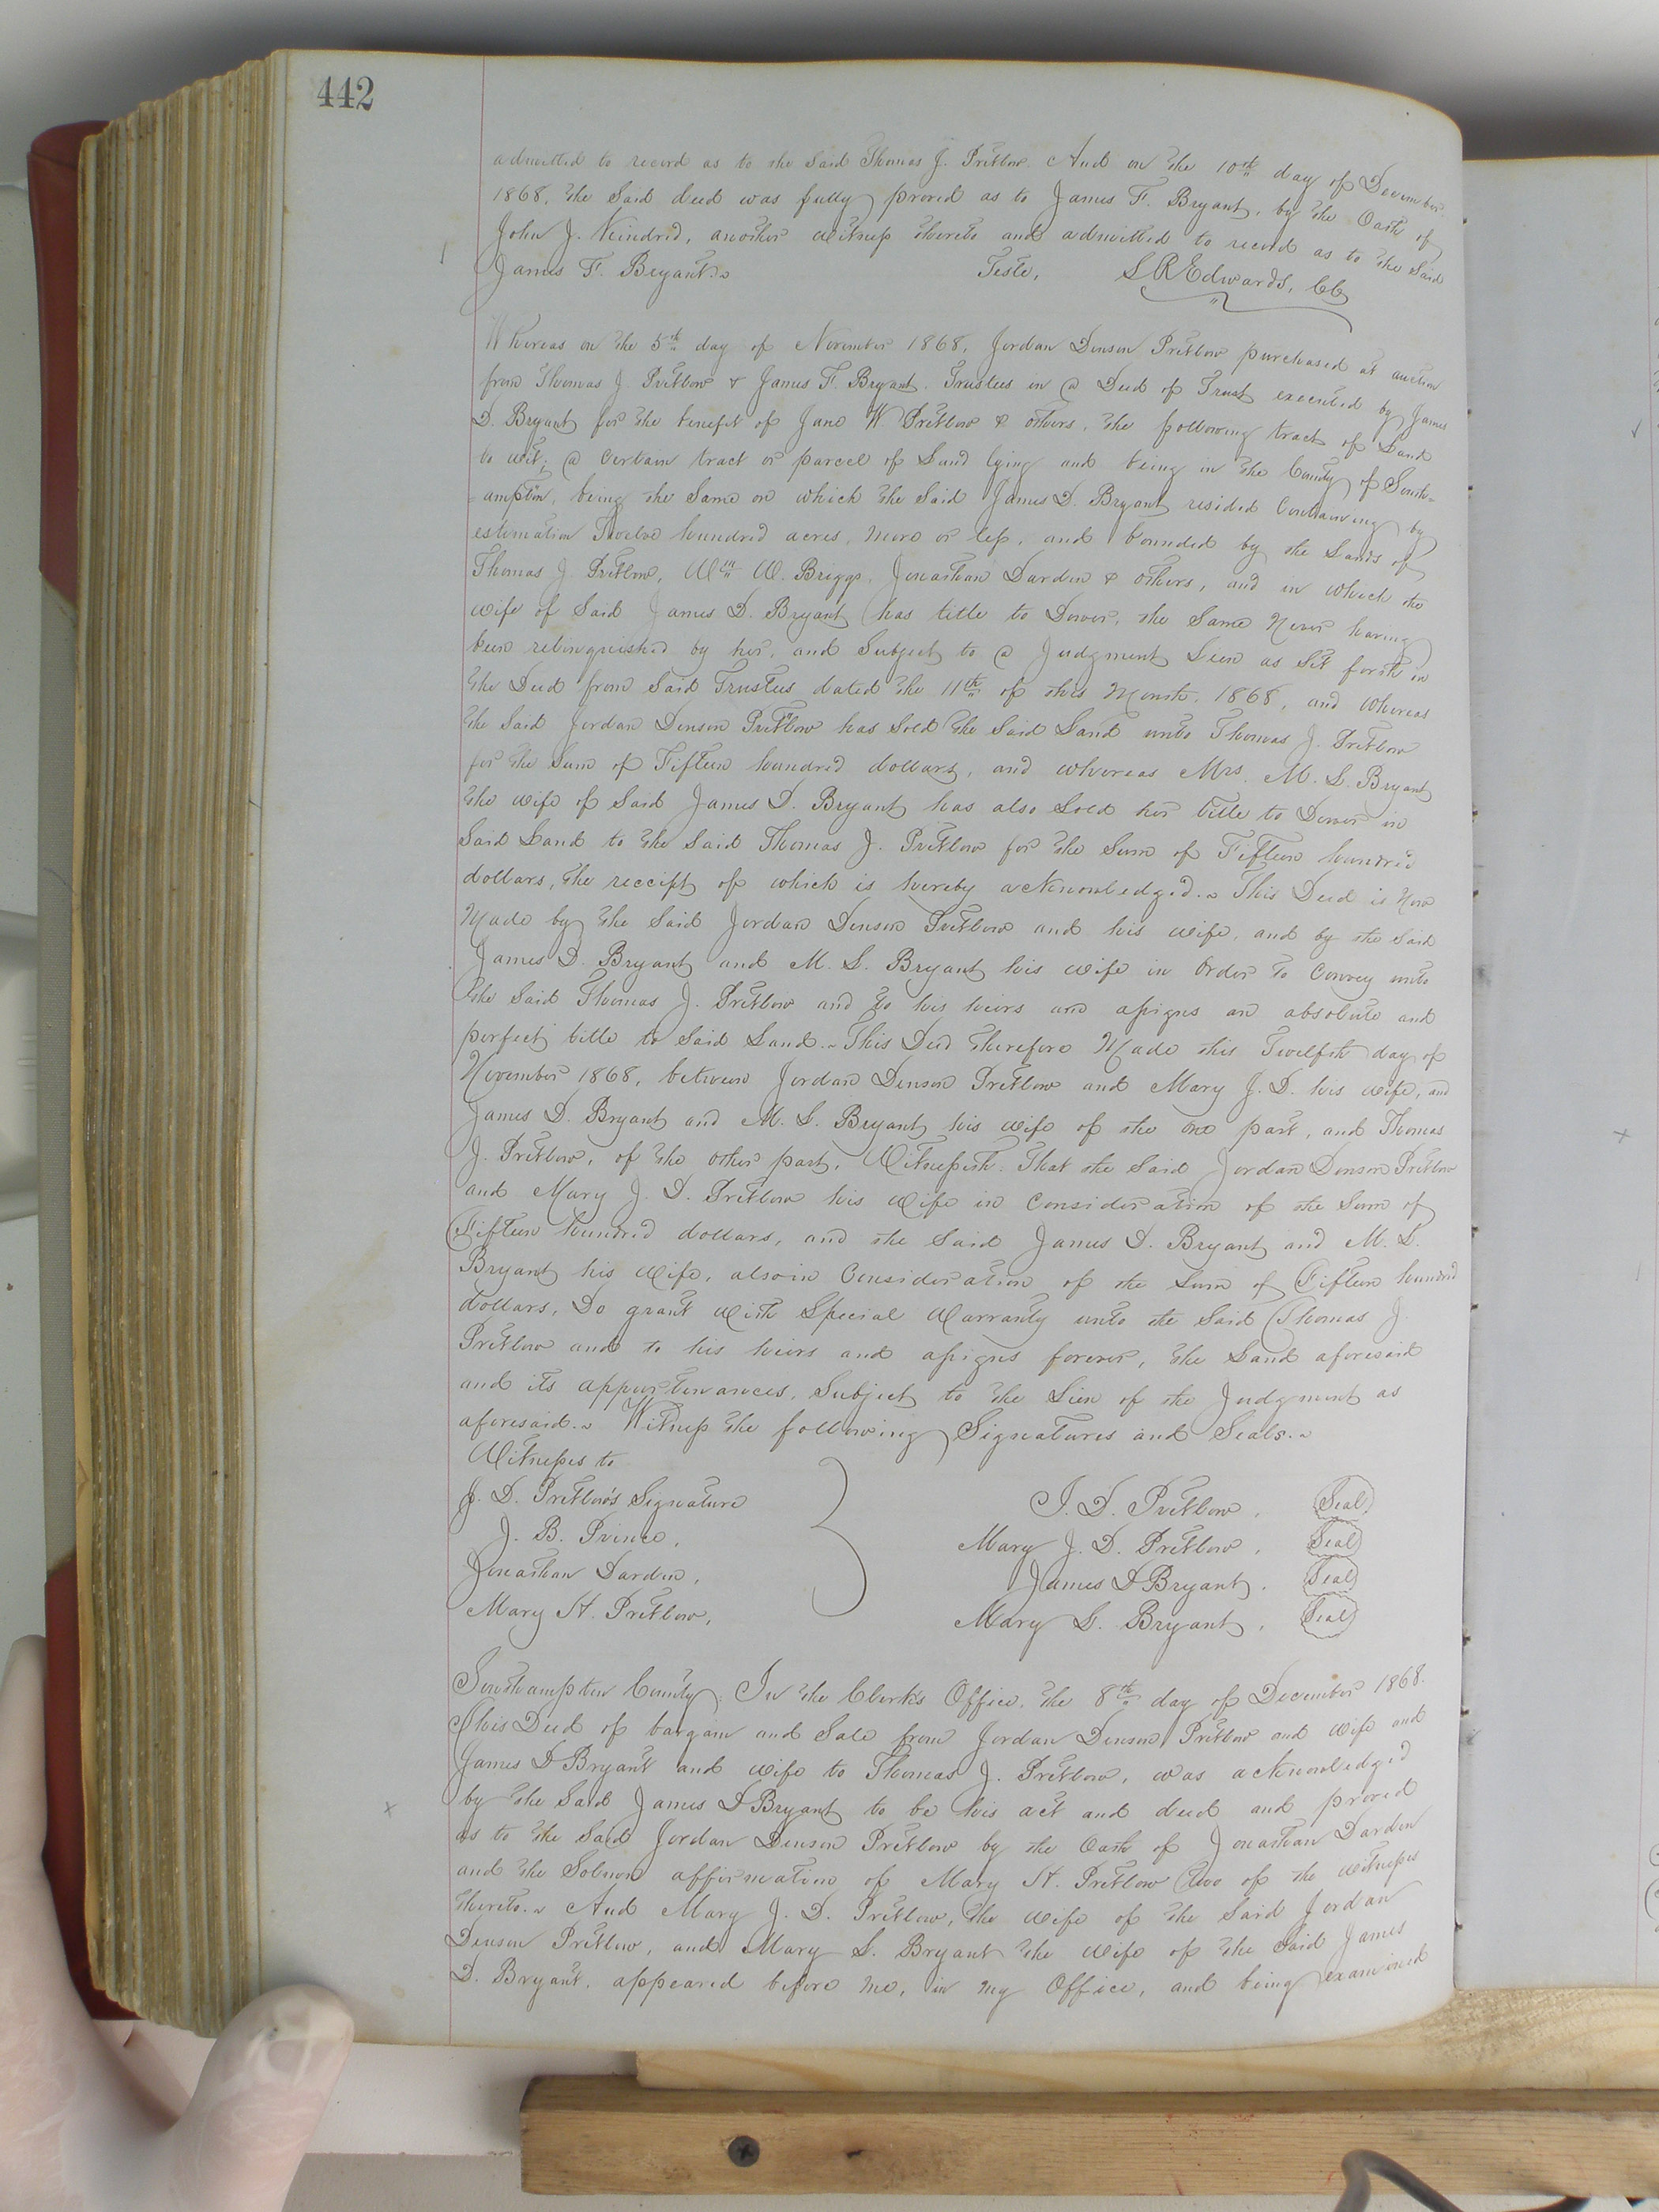 442
admitted to record as to the Said Thomas J. Pretlow. And on the 10th day of December
1868, the Said deed was fully proved as to James F. Bryant, by the Oath of
John J. Kindred, another Witness thereto and admitted to record as to the Said
James F. Bryant.
Teste, L R Edwards, CC
Whereas on the 5th day of November 1868, Jordan Denson Pretlow purchased at auction
from Thomas J. Pretlow & James F. Bryant, Trustees in a Deed of Trust executed by James
D. Bryant for the benefit of Jane W. Pretlow & others, the following tract of Land
to wit; a Certain tract or parcel of Land lying and being in the County of South-
ampton, being the Same on which the Said James D. Bryant resided Containing by
estimation Twelve hundred acres, more or less, and bounded by the Lands of
Thomas J. Pretlow, Wm W. Briggs, Jonathan Darden & others, and in which the
wife of Said James D. Bryant has title to Dower, the Same Never having
been relinquished by her, and Subject to a Judgment Lien as Set forth in
the Deed from Said Trustees dated the 11th of this Month, 1868, and Whereas
the Said Jordan Denson Pretlow has Sold the Said Land unto Thomas J. Pretlow
for the Sum of Fifteen hundred dollars, and whereas Mrs. M. L. Bryant
the wife of Said James D. Bryant has also Sold her title to Dower in
Said Land to the Said Thomas J. Pretlow for the Sum of Fifteen hundred
dollars, the receipt of which is hereby acknowledged. This Deed is Now
Made by the Said Jordan Denson Pretlow and his wife, and by the Said
James D. Bryant and M. L. Bryant his wife in Order to Convey unto
the Said Thomas J. Pretlow and to his heirs and assigns an absolute and
perfect title to Said Land. This Deed therefore Made this Twelfth day of
November 1868, between Jordan Denson Pretlow and Mary J. D. his wife, and
James D. Bryant and M. L. Bryant his wife of the one part, and Thomas
J. Pretlow, of the other part, Witnesseth: That the Said Jordan Denson Pretlow
and Mary J. D. Pretlow his wife in Consideration of the Sum of
Fifteen hundred dollars, and the Said James D. Bryant and M. L.
Bryant his wife, also in Consideration of the Sum of Fifteen hundred
dollars, Do grant with Special Warranty unto the Said Thomas J.
Pretlow and to his heirs and assigns forever, the Land aforesaid
and its appurtenances, Subject to the Lien of the Judgment as
aforesaid. Witness the following Signatures and Seals.
Witnesses to
J. D. Pretlow's Signature
J. B. Prince,
Jonathan Darden,
Mary H. Pretlow,
J. D. Pretlow, Seal
Mary J. D. Pretlow, Seal
James D Bryant, Seal
Mary L. Bryant, Seal
Southampton County; In the Clerk's Office, the 8th day of December 1868.
This Deed of bargain and Sale from Jordan Denson Pretlow and wife and
James D Bryant and wife to Thomas J. Pretlow, was acknowledged
by the Said James D Bryant to be his act and deed and proved
as to the Said Jordan Denson Pretlow by the Oath of Jonathan Darden
and the Solemn affirmation of Mary H. Pretlow two of the witnesses
thereto. And Mary J. D. Pretlow, the wife of the Said Jordan
Denson Pretlow, and Mary L. Bryant the wife of the Said James
D. Bryant, appeared before me, in my Office, and being examined